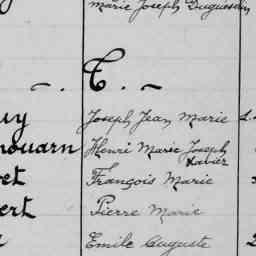 Marie Joseph Duguesclin
T.
uy Joseph Jean Marie
houarn Henri Marie Joseph
Xavier
et François Marie
ert Pierre Marie
Emile Auguste